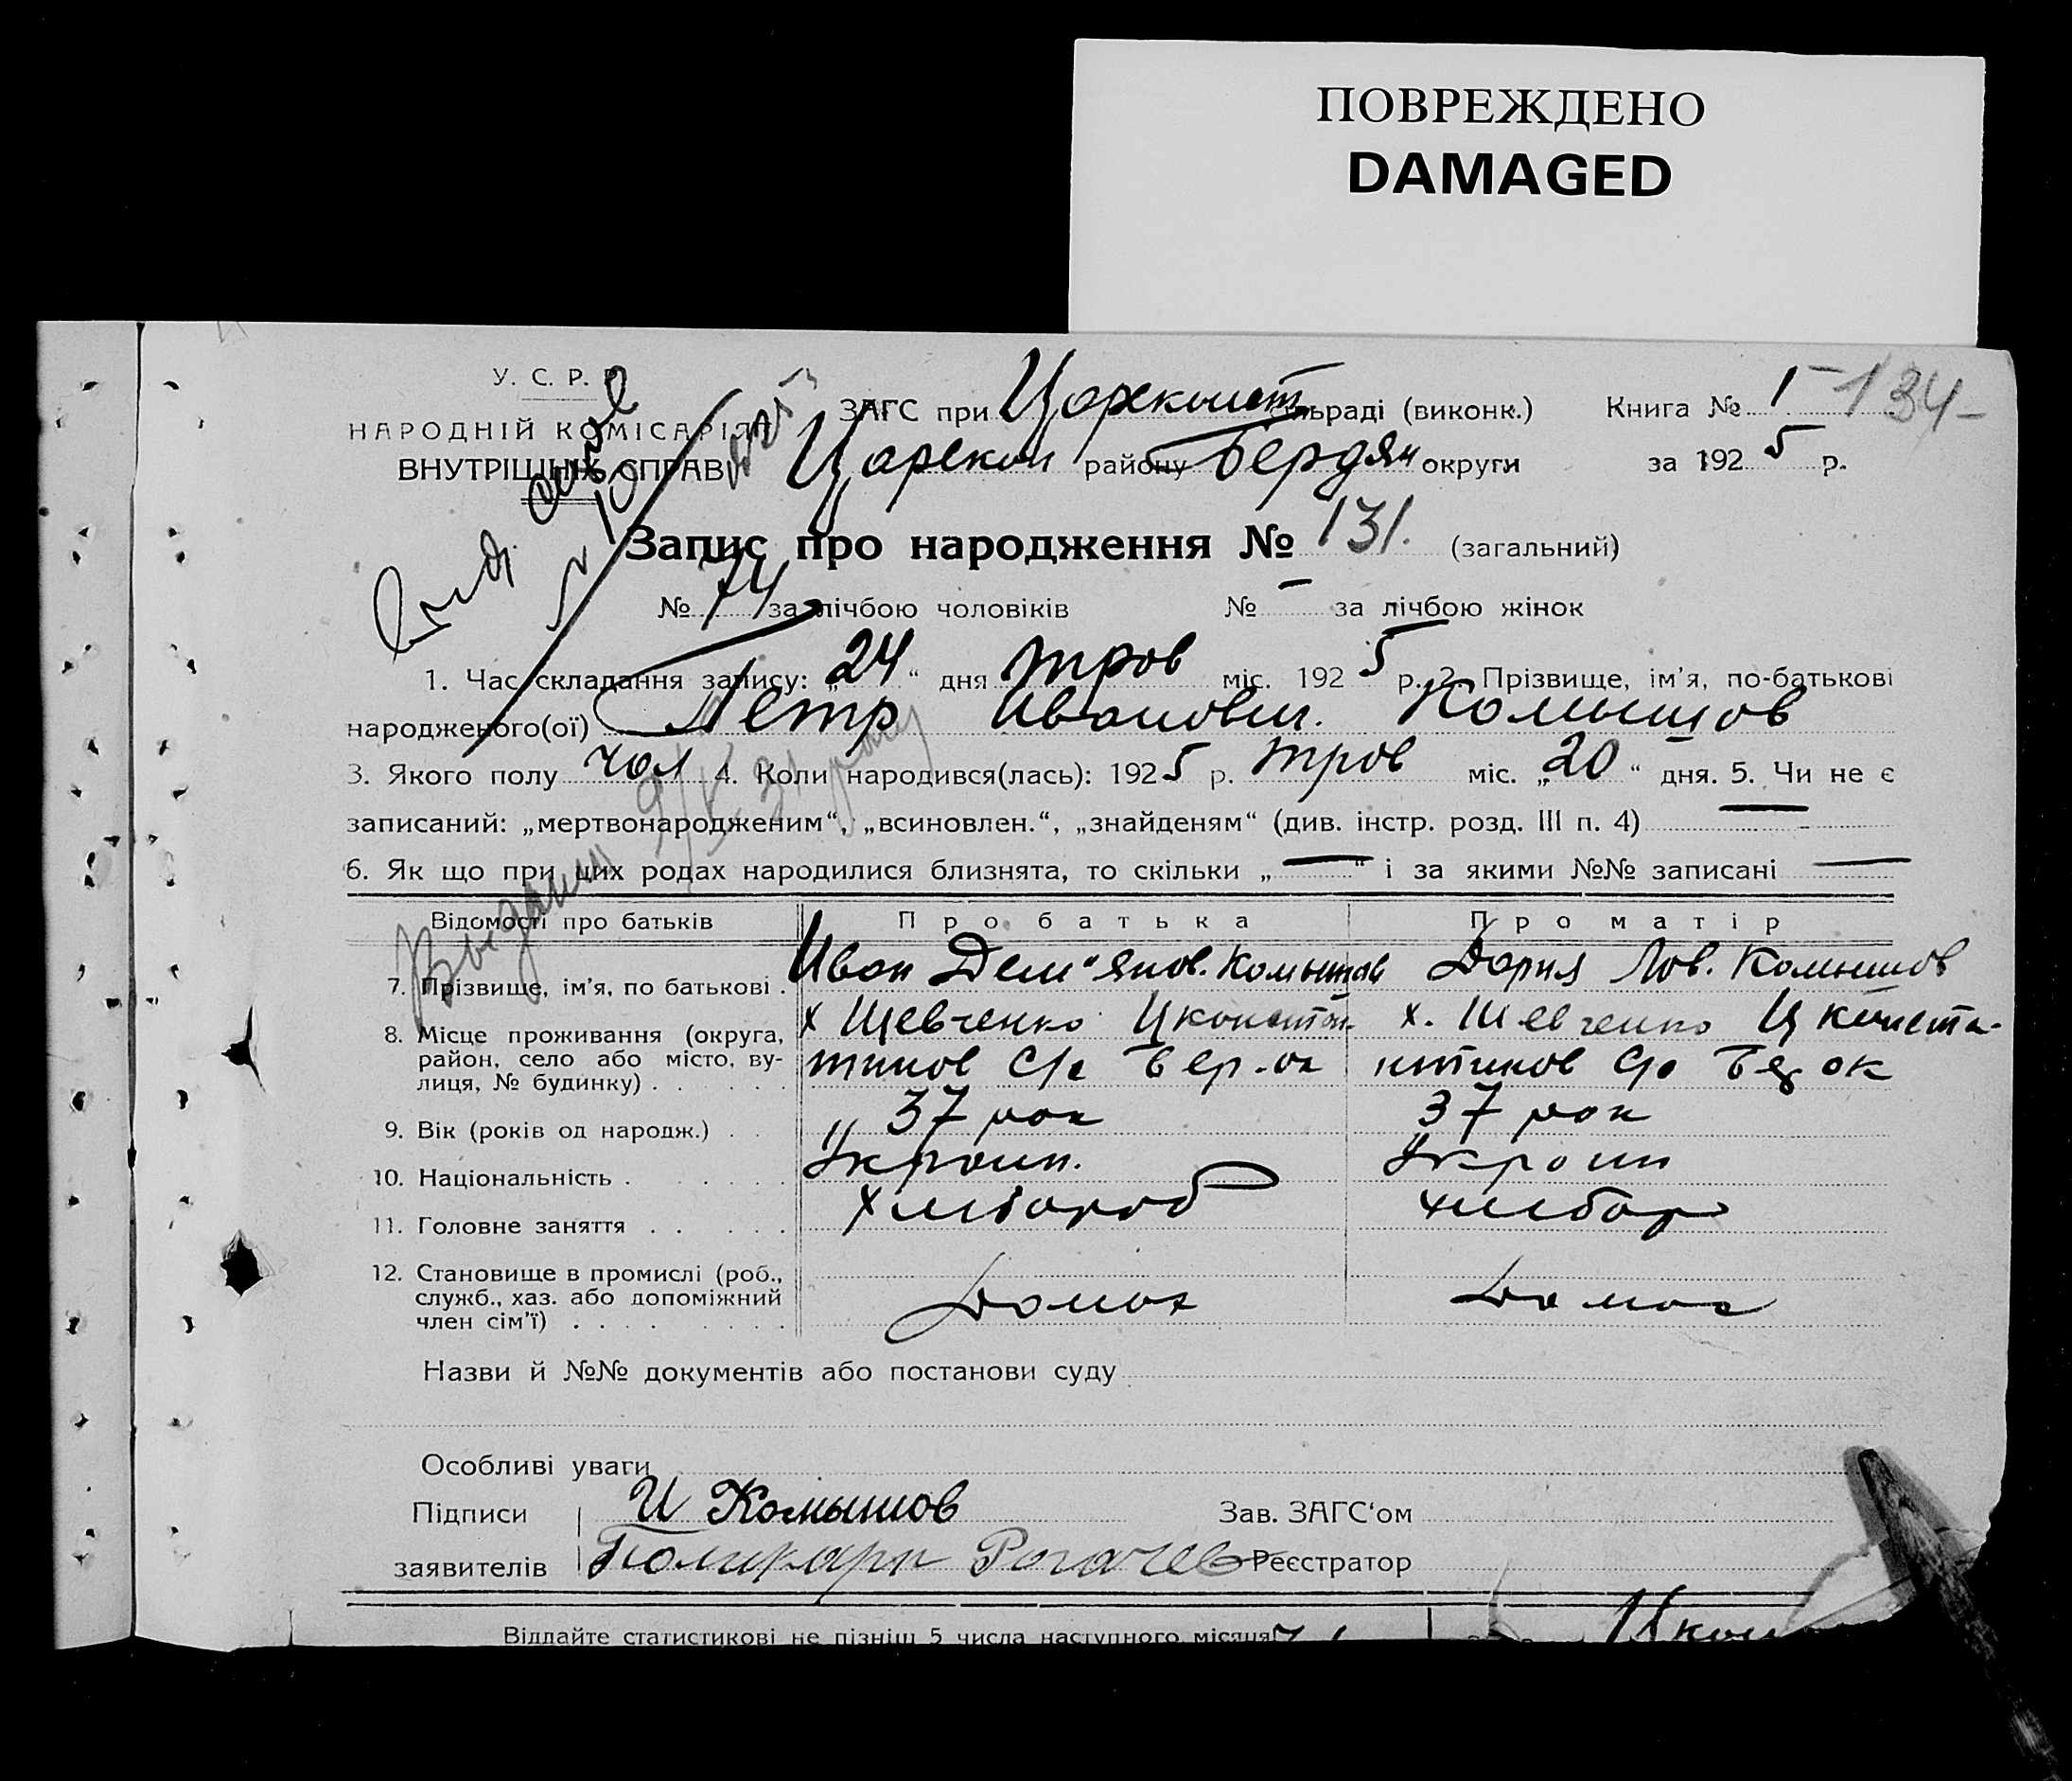 ПОВРЕЖДЕНО
DAMAGED
У. С. Р. Р.
НАРОДНІЙ КОМІСАРІЯТ
ВНУТРІШНІХ СПРАВ
ЗАГС при Цареконст сільраді (виконк.) Книга № 1 -134-
Царекон району Бердян округи за 1925 р.
Запис про народження № 131. (загальний)
№ 74 за лічбою чоловіків № — за лічбою жінок
1. Час складання запису: „24“ дня трав міс. 1925 р. 2. Прізвище, ім'я, по-батькові
народженого(ої) Петр Иванович. Комышов
3. Якого полу чол 4. Коли народився(лась): 1925 р. трав міс. „20“ дня. 5. Чи не є
записаний: „мертвонародженим“, „всиновлен.“, „знайденям“ (див. інстр. розд. III п. 4) —
6. Як що при цих родах народилися близнята, то скільки „—“ і за якими №№ записані —
Відомості про батьків Про батька Про матір
7. Прізвище, ім'я, по батькові . Иван Дем"янов. Комышов Дария Комышов
8. Місце проживання (округа, район, село або місто, вулиця, № будинку) . х Шевченко Цконстан- х. Шевченко Ц конста-
тинов с/р Бер. ок нтинов с/р ок
9. Вік (років од народж.) . . 37 рок 37 рок
10. Національність . Украин. Украин
11. Головне заняття . . хлібороб хлебор
12. Становище в промислі (роб.,
служб., хаз. або допоміжний
член сім'ї) . . . .
Назви й №№ документів або постанови суду
Особливі уваги
Підписи И Комышов Зав. ЗАГС'ом
заявителів Поликарп Рогачев Реєстратор
Віддайте статистикові не пізніш 5 числа наступного місяця